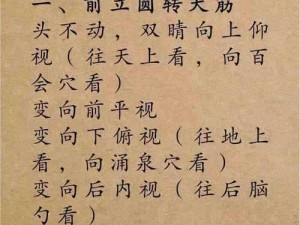 一、前立圆转大筋
头不动，双睛向上仰
视（往天上看，向百
会穴看）
变向前平视
变向下俯视（往地上
看，向涌泉穴看）
变向后内视（往后脑
勺看）